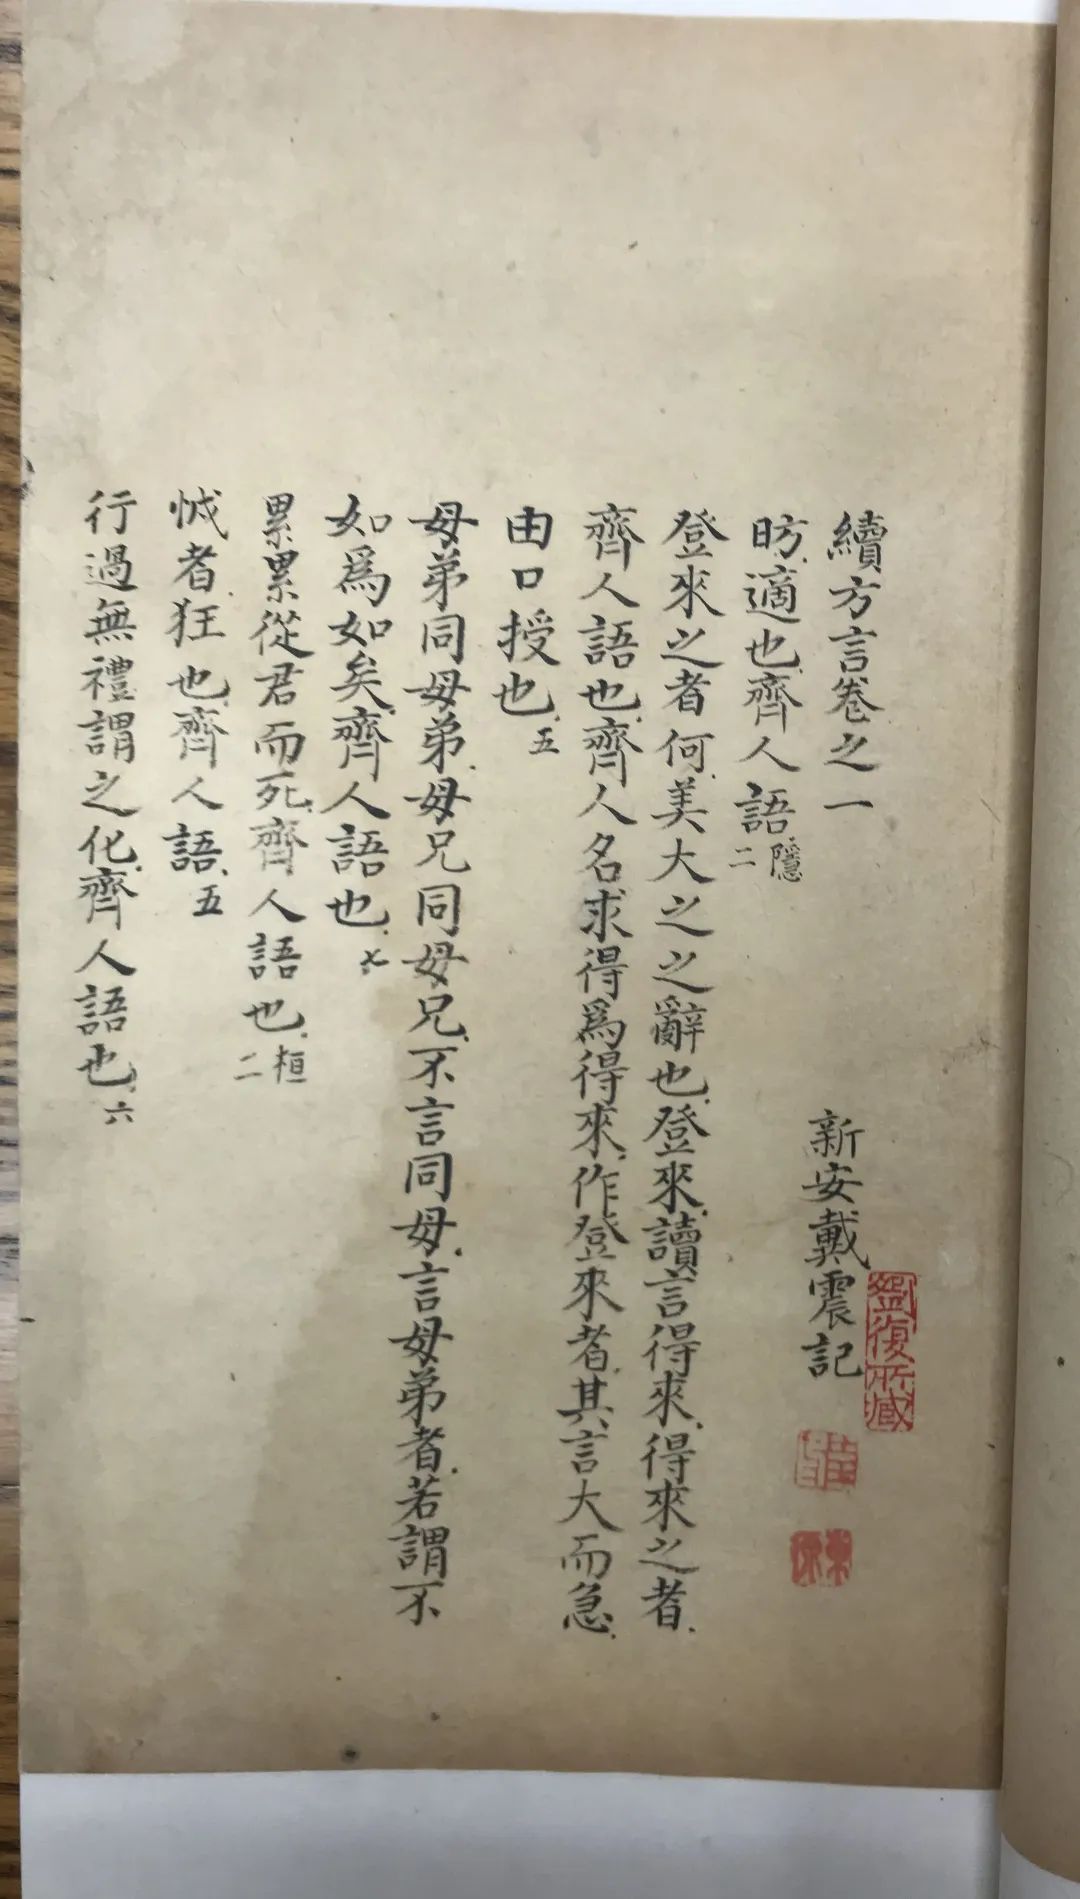 續方言卷之一
新安戴震記
劉復所藏
昉適也齊人語隱二
登來之者何美大之之辭也登來讀言得來得來之者
齊人語也齊人名求得爲得來作登來者其言大而急
由口授也五
母弟同母弟母兄同母兄不言同母言母弟者若謂不
如爲如矣齊人語也七
累累從君而死齊人語也桓二
㤜者狂也齊人語五
行過無禮謂之化齊人語也六